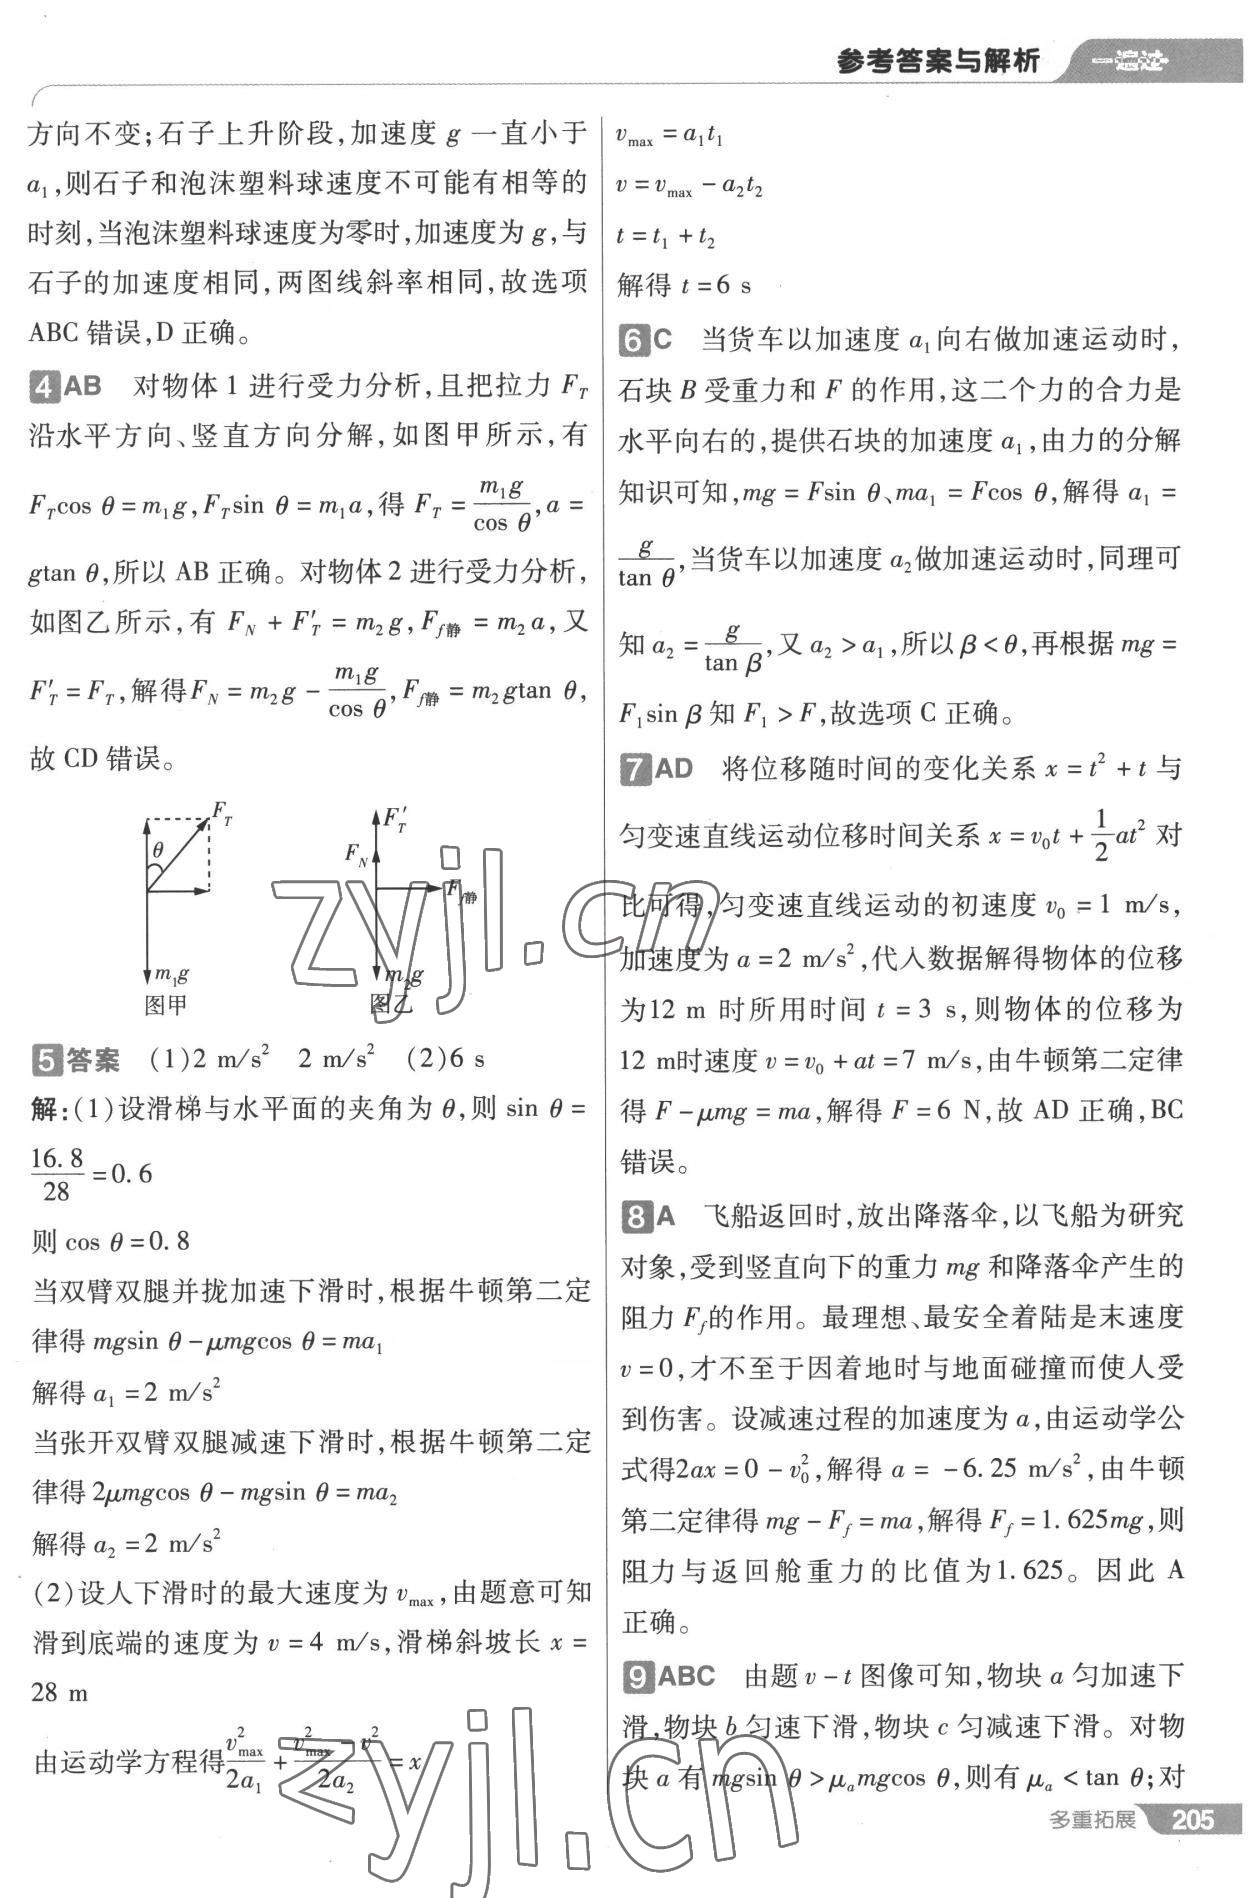 参考答案与解析 一遍过
方向不变;石子上升阶段,加速度 g 一直小于
a₁,则石子和泡沫塑料球速度不可能有相等的
时刻,当泡沫塑料球速度为零时,加速度为 g,与
石子的加速度相同,两图线斜率相同,故选项
ABC 错误,D 正确。
4 AB 对物体 1 进行受力分析,且把拉力 F_T
沿水平方向、竖直方向分解,如图甲所示,有
F_T cos θ = m₁g, F_T sin θ = m₁a,得 F_T = m₁g/cos θ, a =
gtan θ,所以 AB 正确。对物体 2 进行受力分析,
如图乙所示,有 F_N + F′_T = m₂g, F_f静 = m₂a,又
F′_T = F_T,解得 F_N = m₂g − m₁g/cos θ, F_f静 = m₂gtan θ,
故 CD 错误。
F_T
θ
m₁g
图甲
F′_T
F_N
F_f静
m₂g
图乙
5 答案 (1)2 m/s² 2 m/s² (2)6 s
解:(1)设滑梯与水平面的夹角为 θ,则 sin θ =
16.8/28 = 0.6
则 cos θ = 0.8
当双臂双腿并拢加速下滑时,根据牛顿第二定
律得 mgsin θ − μmgcos θ = ma₁
解得 a₁ = 2 m/s²
当张开双臂双腿减速下滑时,根据牛顿第二定
律得 2μmgcos θ − mgsin θ = ma₂
解得 a₂ = 2 m/s²
(2)设人下滑时的最大速度为 v_max,由题意可知
滑到底端的速度为 v = 4 m/s,滑梯斜坡长 x =
28 m
由运动学方程得 v²_max/2a₁ + (v²_max − v²)/2a₂ = x
v_max = a₁t₁
v = v_max − a₂t₂
t = t₁ + t₂
解得 t = 6 s
6 C 当货车以加速度 a₁ 向右做加速运动时,
石块 B 受重力和 F 的作用,这二个力的合力是
水平向右的,提供石块的加速度 a₁,由力的分解
知识可知,mg = Fsin θ、ma₁ = Fcos θ,解得 a₁ =
g/tan θ,当货车以加速度 a₂ 做加速运动时,同理可
知 a₂ = g/tan β,又 a₂ > a₁,所以 β < θ,再根据 mg =
F₁sin β 知 F₁ > F,故选项 C 正确。
7 AD 将位移随时间的变化关系 x = t² + t 与
匀变速直线运动位移时间关系 x = v₀t + 1/2 at² 对
比可得,匀变速直线运动的初速度 v₀ = 1 m/s,
加速度为 a = 2 m/s²,代入数据解得物体的位移
为12 m 时所用时间 t = 3 s,则物体的位移为
12 m时速度 v = v₀ + at = 7 m/s,由牛顿第二定律
得 F − μmg = ma,解得 F = 6 N,故 AD 正确,BC
错误。
8 A 飞船返回时,放出降落伞,以飞船为研究
对象,受到竖直向下的重力 mg 和降落伞产生的
阻力 F_f 的作用。最理想、最安全着陆是末速度
v = 0,才不至于因着地时与地面碰撞而使人受
到伤害。设减速过程的加速度为 a,由运动学公
式得2ax = 0 − v₀²,解得 a = −6.25 m/s²,由牛顿
第二定律得 mg − F_f = ma,解得 F_f = 1.625mg,则
阻力与返回舱重力的比值为1.625。因此 A
正确。
9 ABC 由题 v − t 图像可知,物块 a 匀加速下
滑,物块 b 匀速下滑,物块 c 匀减速下滑。对物
块 a 有 mgsin θ > μ_a mgcos θ,则有 μ_a < tan θ;对
多重拓展 205
zyjl.cn
zyjl.cn